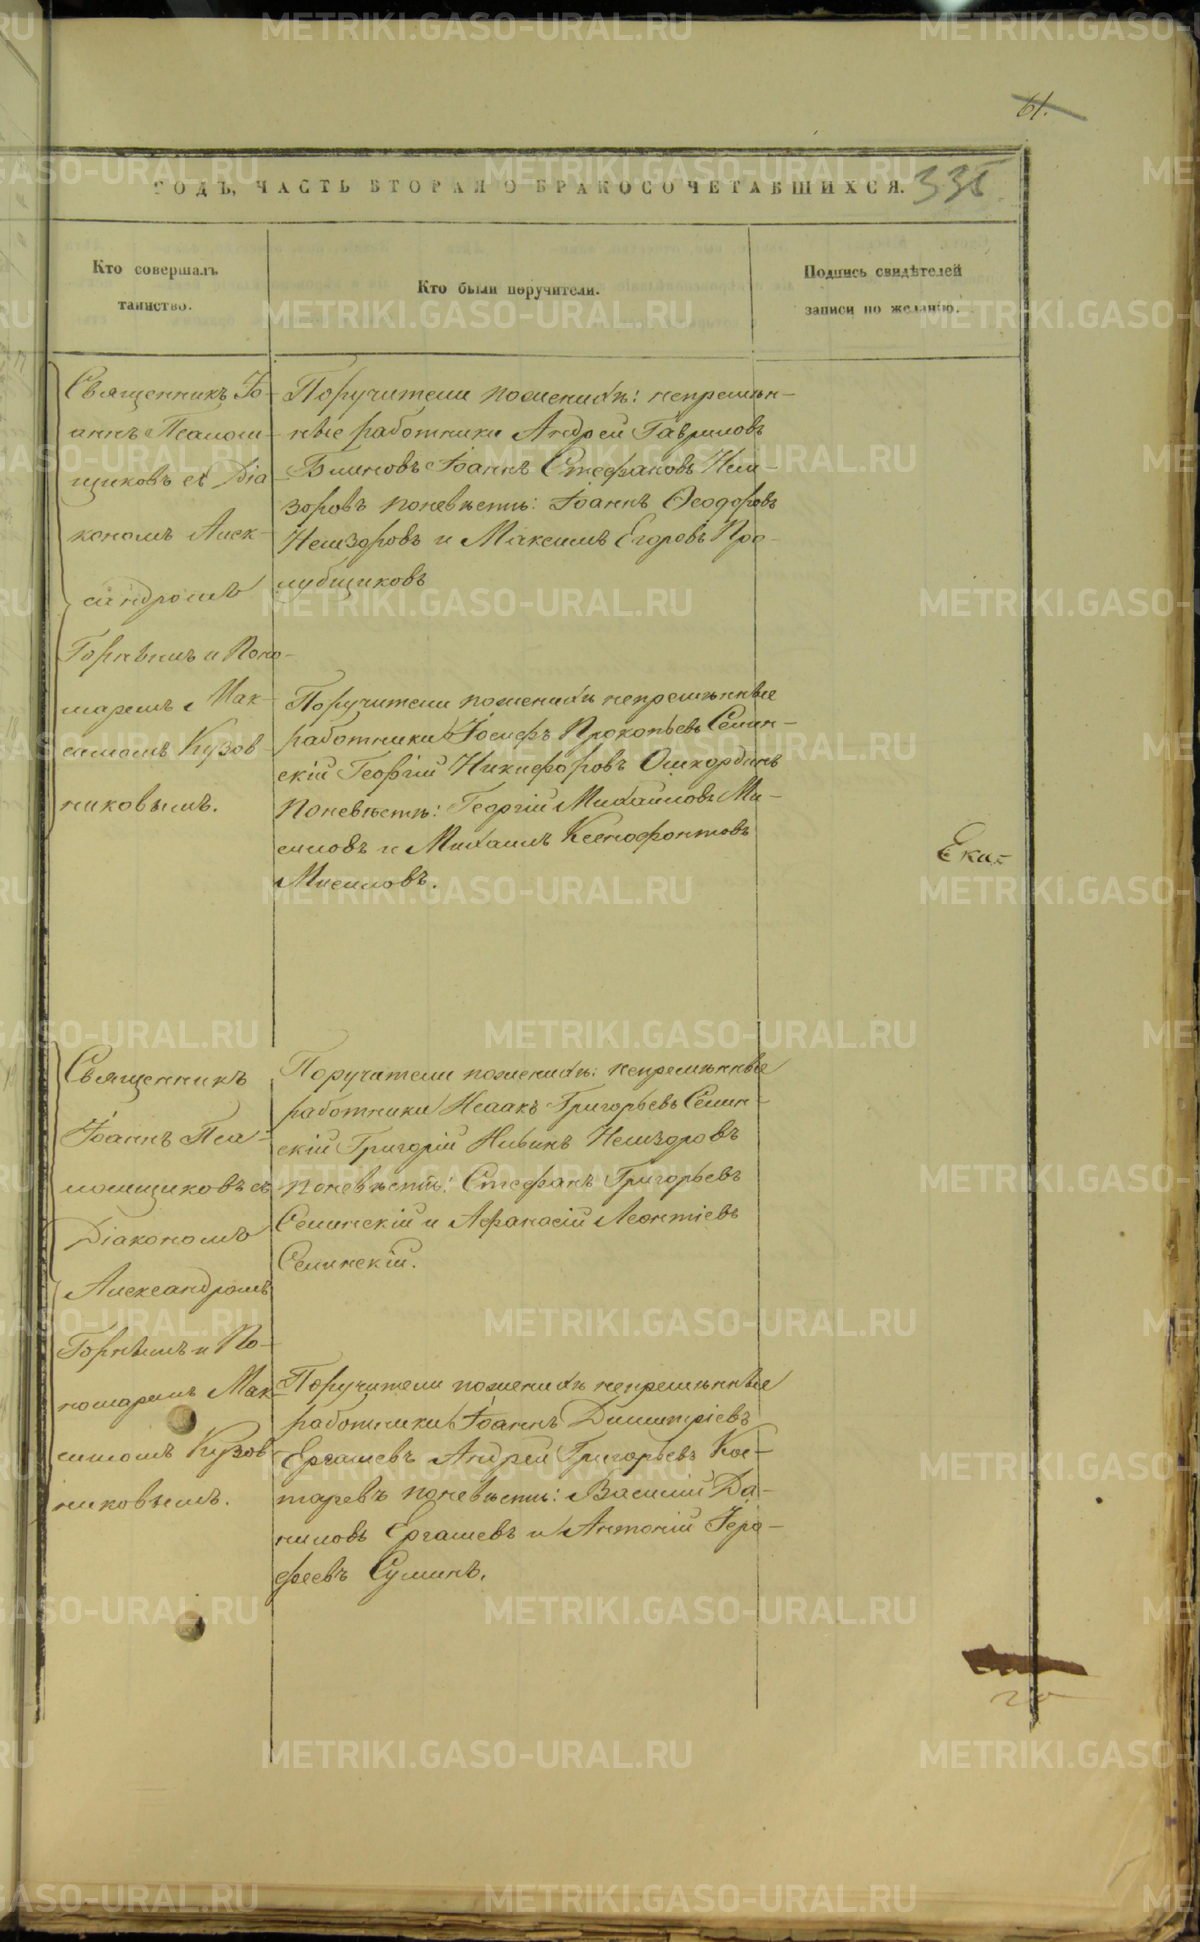 61.
ГОДЪ, ЧАСТЬ ВТОРАЯ О БРАКОСОЧЕТАВШИХСЯ. 335
Кто совершалъ
таинство.
Кто были поручители.
Подпись свидѣтелей
записи по желанію.
Священникъ Іо-
аннъ Псалом-
щиковъ съ Діа
кономъ Алек-
сандромъ
Горнымъ и Поно-
маремъ Мак-
симомъ Кузов-
никовымъ.
Поручители по женихѣ: непремѣн-
ные работники Андрей Гавриловъ
Блиновъ Іоаннъ Стефановъ Нем-
зоровъ по невѣстѣ: Іоаннъ Ѳеодоровъ
Немзоровъ и Максимъ Егоровъ Про-
лубщиковъ
Поручители по женихѣ непремѣнные
работники Іосифъ Прокопьевъ Семин-
скій Георгій Никифоровъ
по невѣстѣ: Георгій Михайловъ Ми-
силовъ и Михаилъ Ксенофонтовъ
Мисиловъ.
Ека-
Священникъ
Іоаннъ Пса-
ломщиковъ съ
Діакономъ
Александромъ
Горнымъ и По-
номаремъ Мак
симомъ Кузов-
никовымъ.
Поручители по женихѣ: непремѣнные
работники Исаакъ Григорьевъ Семин-
скій Григорій Немзоровъ
по невѣстѣ: Стефанъ Григорьевъ
Семинскій и Афанасій Леонтіевъ
Семинскій.
Поручители по женихѣ непремѣнные
работники Іоаннъ Димитріевъ
Ергашевъ Андрей Григорьевъ Кос-
таревъ по невѣстѣ: Василій Да-
ниловъ Ергашевъ и Антоній Іеро-
феевъ Суминъ.
METRIKI.GASO-URAL.RU